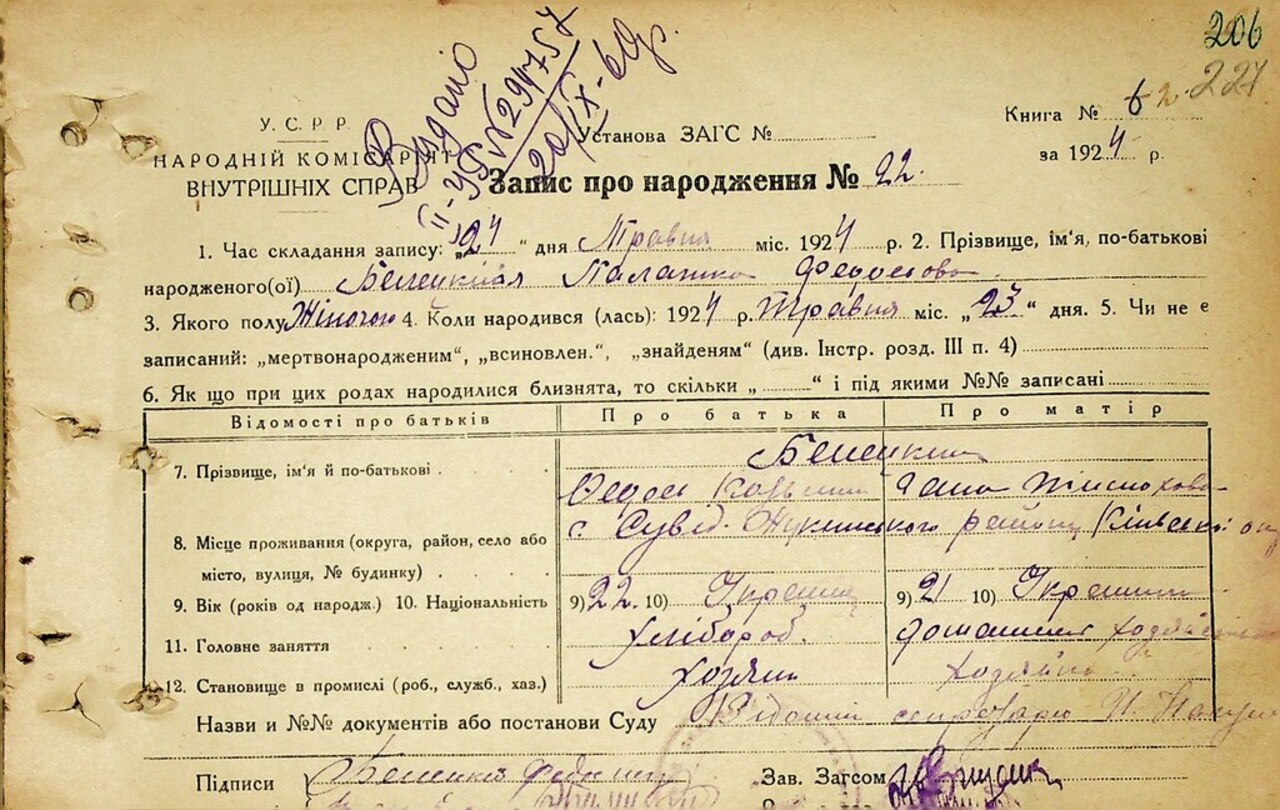 206
227
Видано
II-УБ № 294757
20/IX-69р.
У. С. Р. Р.
НАРОДНІЙ КОМІСАРІЯТ
ВНУТРІШНІХ СПРАВ
Установа ЗАГС №
Книга № 6
за 1924 р.
Запис про народження № 22.
1. Час складання запису: „24“ дня Травня міс. 1924 р. 2. Прізвище, ім'я, по-батькові
народженого(ої) Белецкая Палашка Федосова
3. Якого полу Жіночого 4. Коли народився (лась): 1924 р. Травня міс. „23“ дня. 5. Чи не є
записаний: „мертвонародженим“, „всиновлен.“, „знайденям“ (див. Інстр. розд. III п. 4)
6. Як що при цих родах народилися близнята, то скільки „ “ і під якими №№ записані
Відомості про батьків Про батька Про матір
7. Прізвище, ім'я й по-батькові Белецкии
Федось Ганна
8. Місце проживання (округа, район, село або с. Сувід. району
місто, вулиця, № будинку)
9. Вік (років од народж.) 10. Національність 9) 22. 10) 9) 21 10)
11. Головне заняття Хлібороб. домашнья
12. Становище в промислі (роб., служб., хаз.) Хозяин
Назви и №№ документів або постанови Суду
Підписи Зав. Загсом